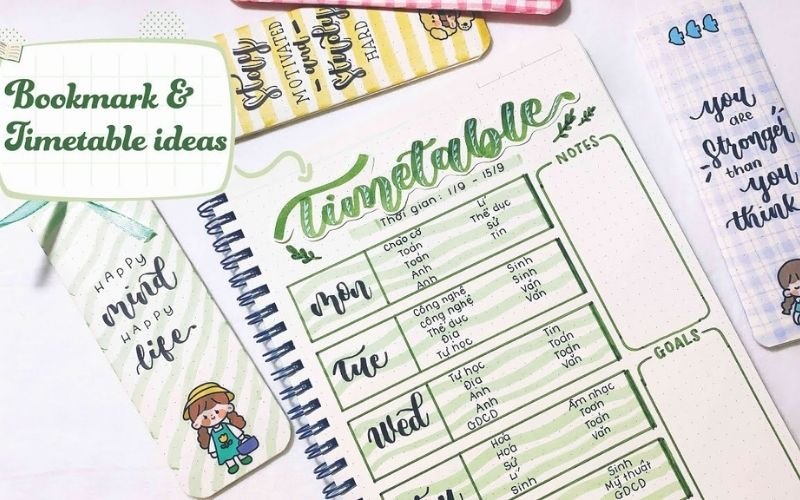 Bookmark &
Timetable ideas
Stay
MOTIVATED
and
Study
HARD
you
are
Stronger
than
you
think
HAPPY
mind
HAPPY
life
Timetable
Thời gian: 1/9 - 15/9
NOTES
GOALS
mon
Chào cờ
Toán
Toán
Anh
Lí
Thể dục
Sử
Tin
Tue
Công nghệ
Công nghệ
Thể dục
Địa
Tự học
Sinh
Sinh
Văn
Văn
Wed
Tự học
Địa
Anh
Anh
GDCD
Tin
Toán
Toán
Văn
Hóa
Hoá
Sử
Lí
Âm nhạc
Toán
Toán
Văn
Sinh
Mỹ thuật
GDCD